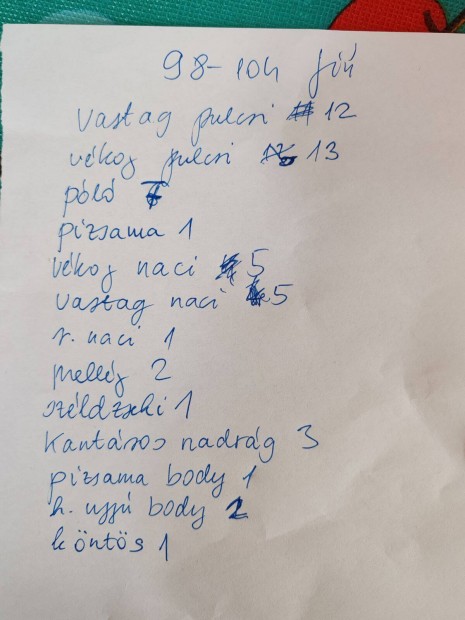 98-104 fiú
vastag pulcsi 12
vékoj pulcsi 13
póló
pizsama 1
vékoj naci 5
vastag naci 5
r. naci 1
melléj 2
széldzseki 1
kantásos nadrág 3
pizsama body 1
h. ujjú body 2
köntös 1